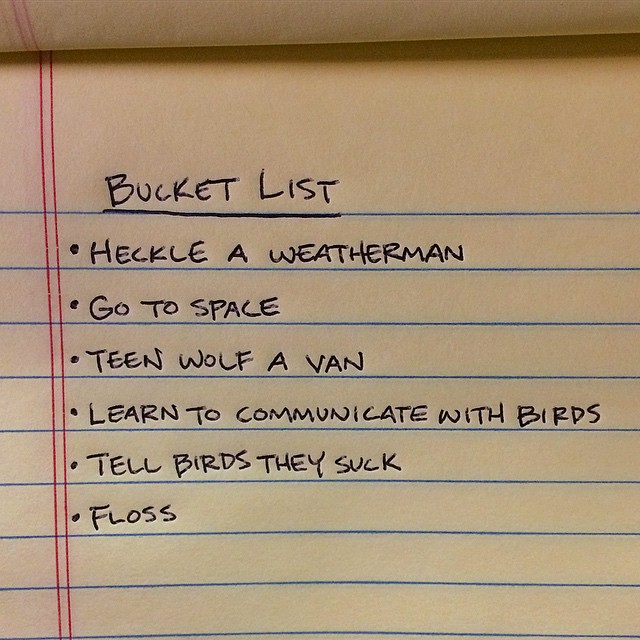 BUCKET LIST
• HECKLE A WEATHERMAN
• GO TO SPACE
• TEEN WOLF A VAN
• LEARN TO COMMUNICATE WITH BIRDS
• TELL BIRDS THEY SUCK
• FLOSS